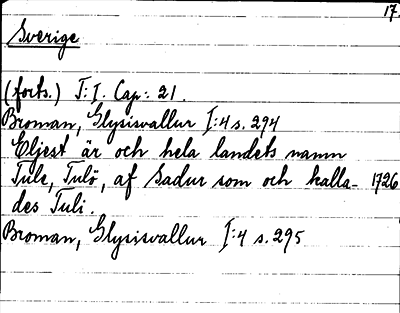 17.
Sverige
(forts.) T: I. Cap: 21.
Broman, Glysisvallur I:4 s. 294
Eljest är och hela landets namn
Tule, Tulö, af Sadur som och kalla- 1726
des Tuli.
Broman, Glysisvallur I:4 s. 295